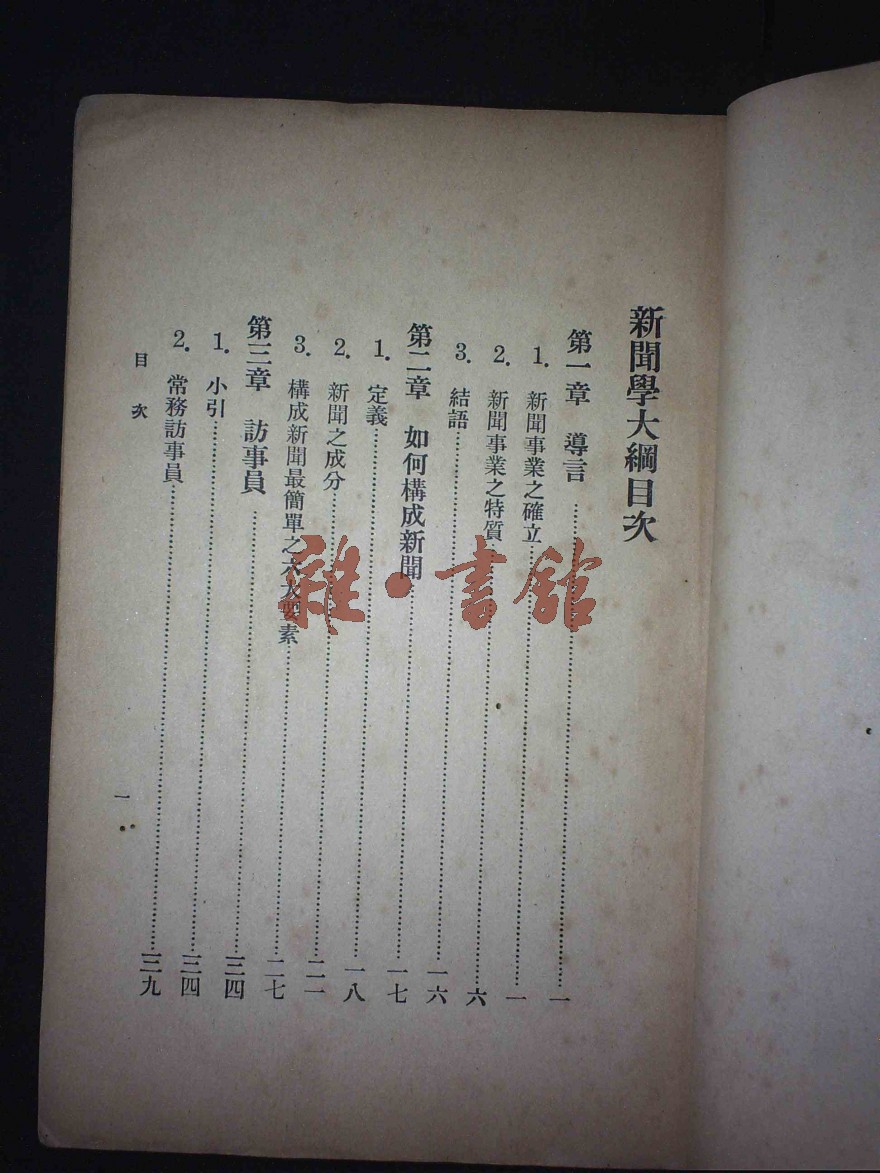 新聞學大綱目次
第一章 導言……一
1. 新聞事業之確立……一
2. 新聞事業之特質……六
3. 結語……一六
第二章 如何構成新聞……一七
1. 定義……一八
2. 新聞之成分……二一
3. 構成新聞最簡單之六大要素……二七
第三章 訪事員……三四
1. 小引……三四
2. 常務訪事員……三九
目次
一
雜·書館